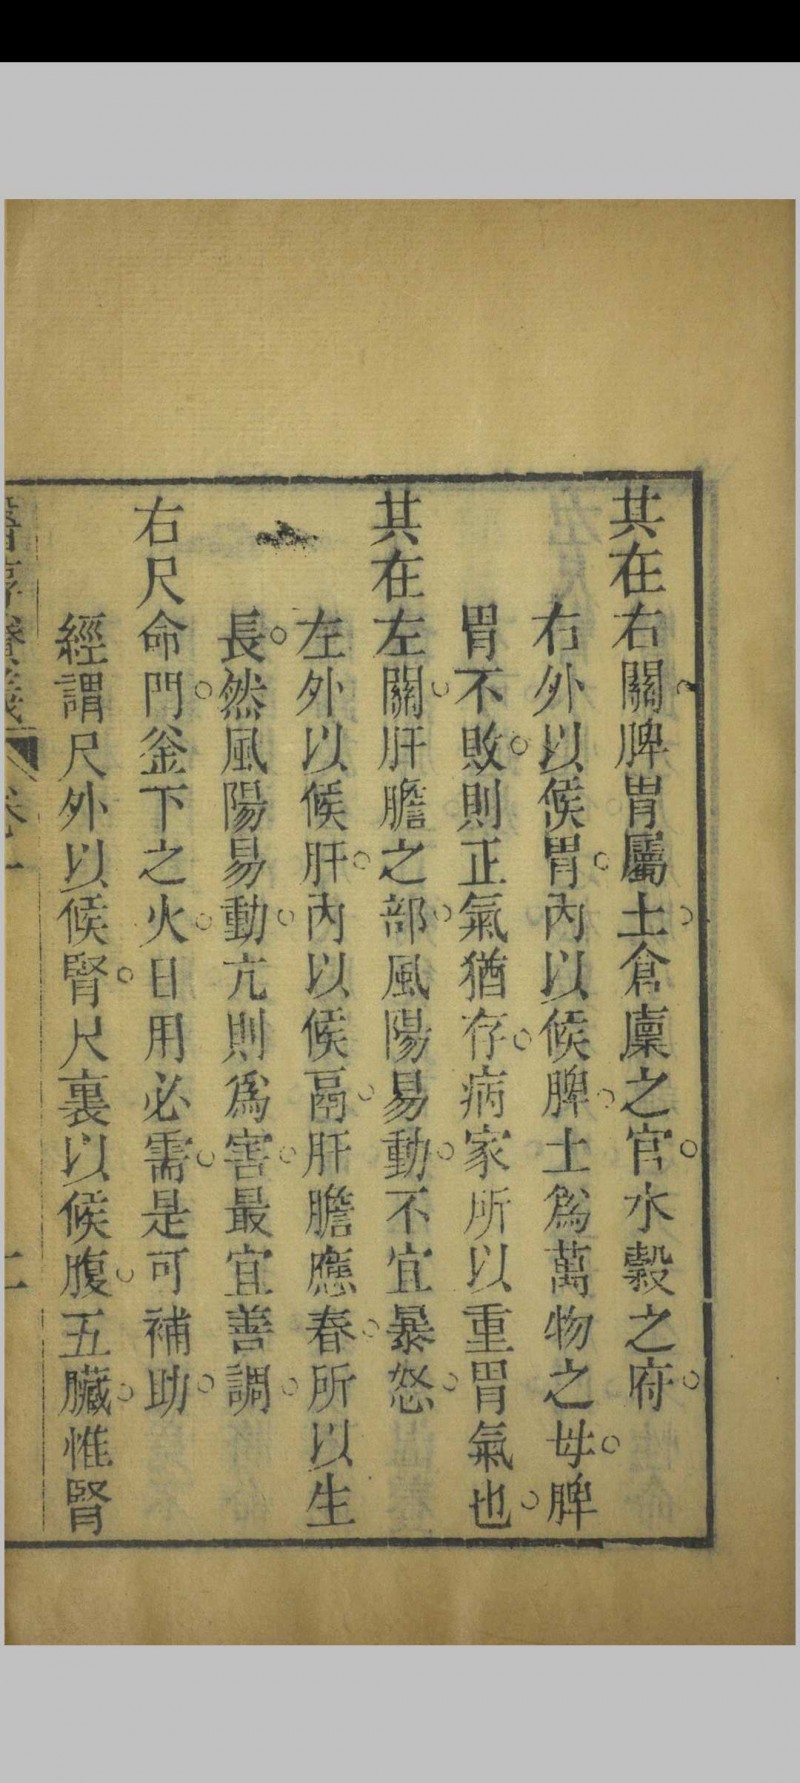 其在右關脾胃屬土倉廩之官水穀之府
右外以候胃內以候脾土爲萬物之母脾
胃不敗則正氣猶存病家所以重胃氣也
其在左關肝膽之部風陽易動不宜暴怒
左外以候肝內以候鬲肝膽應春所以生
長然風陽易動亢則爲害最宜善調
右尺命門釜下之火日用必需是可補助
經謂尺外以候腎尺裏以候腹五臟惟腎